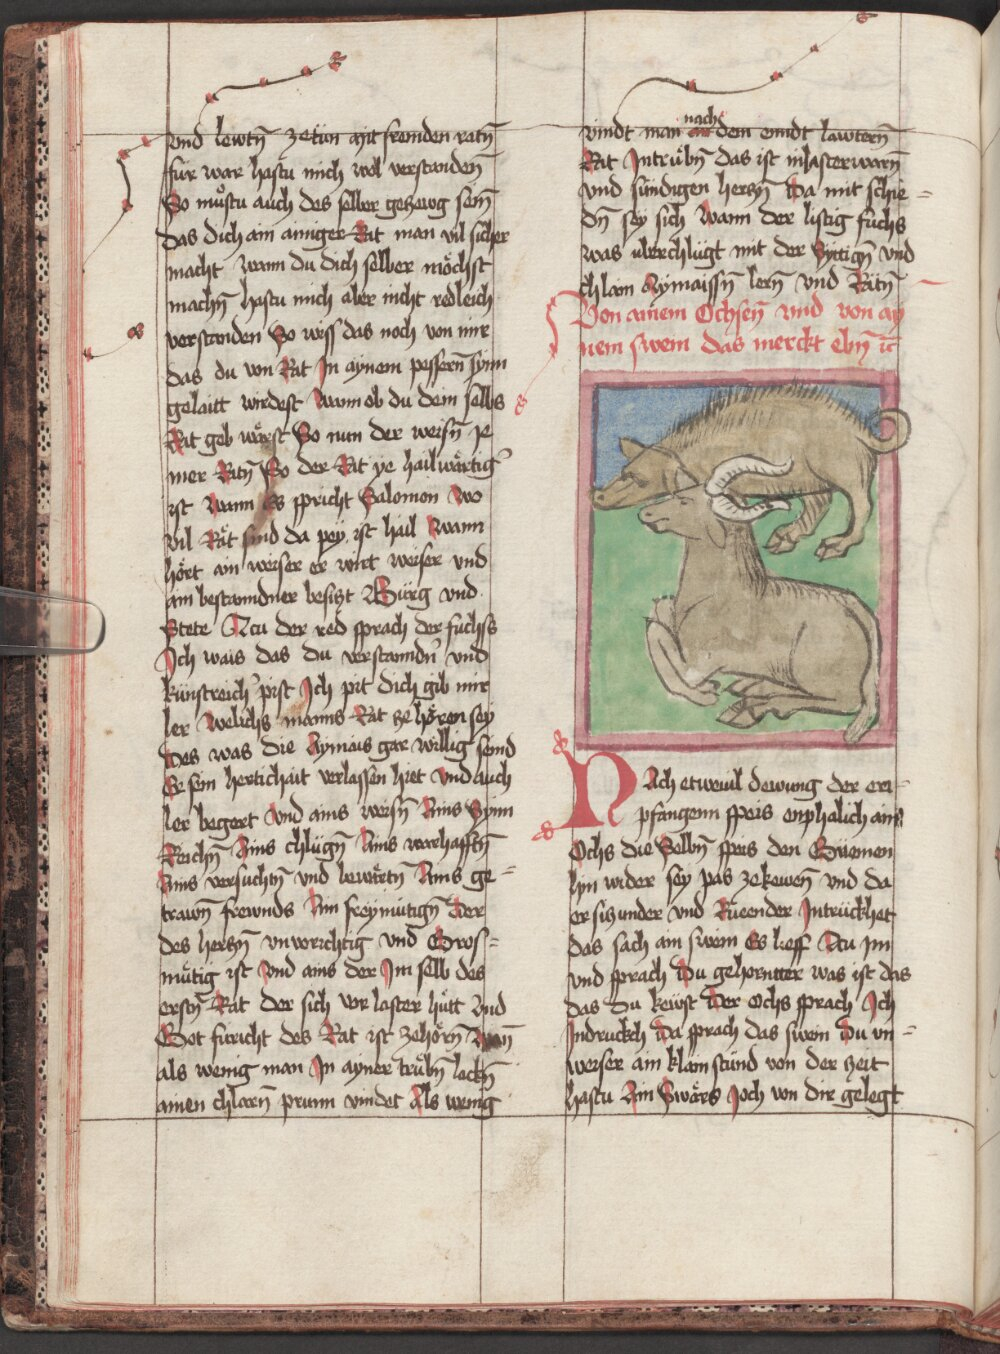 vnd lewtn̄ zetün mit fremden ratn̄
für war hastu mich wol verstanden
So müstu auch des selber gezewg sein
das dich ain ainiger Rat man vil sicher
macht wann du dich selber möchst
machn̄ hastu mich aber nicht redleich
verstanden So wiss das noch von mir
das du von Rat In aynem pessern synn
gelaitt wirdest Wann ob du dem selbs
Rat geb wärst So nun der weisn̄ je
mer Ratn̄ So der Rat ye hailwärtig
ist Wann Es spricht Salomon Wo
vil Rät sind da pey ist hail Wann
hört ain weiser er wirt weiser und
ain bestanndner besitzt Bürg vnd
Stete Zcu der red sprach der fuchss
Ich wais das du verstanndn̄ vnd
künstreich pist Ich pit dich gib mir
ler Welichs manns Rat ze hören sey
Des was die Aymais gar willig seind
Er sein hertichait verlassen hiet vnd auch
ler begert Vnd ains weisn̄ Ains Synn
Reichn̄ Ains chlügn̄ Ains warhafftn̄
Ains versuchtn̄ vnd bewärtn̄ Ains ge=
trawn̄ frewnds Ain freymütign̄ Der
des herczn̄ vnvorichtig vnd Gros=
mütig ist Vnd ains der Im selb des
erstn̄ Rat der sich vor laster hütt Vnd
Got füricht des Rat ist zehörn̄ Wan̄
als wenig man In ayner trübn̄ lackn̄
ainen chlarn̄ prunn vindet Als wenig
vindt man nach dem enndt lawtern̄
Rat Intrübn̄ das ist inlasterwarn̄
vnd sündigen herczn̄ Da mit schie=
dn̄ sey sich Wann der listig fuchs
was uberchlügt mit der Sytign̄ vnd
chlain Aymaissn̄ lern̄ vnd Ratn̄
Von ainem Ochsen̄ vnd von ay
nem swein das merckt ebn̄ ꝛc̄
NAch etwevil dewung der em=
pfangenn speis enphalich ain
Ochs die Selbn̄ speis den Güemen
hin wider sey pas zekewen̄ vnd da
er siczunder vnd Rueender Intrückhet
das sach ain swein Es lieff Zcu Im
vnd sprach Du gehorntter was ist das
das du kewst Der Ochs sprach Ich
Indruckch Da sprach das swein Du vn=
weiser ain klain stünd von der zeit
hastu Ain Swärs Joch von dir gelegt